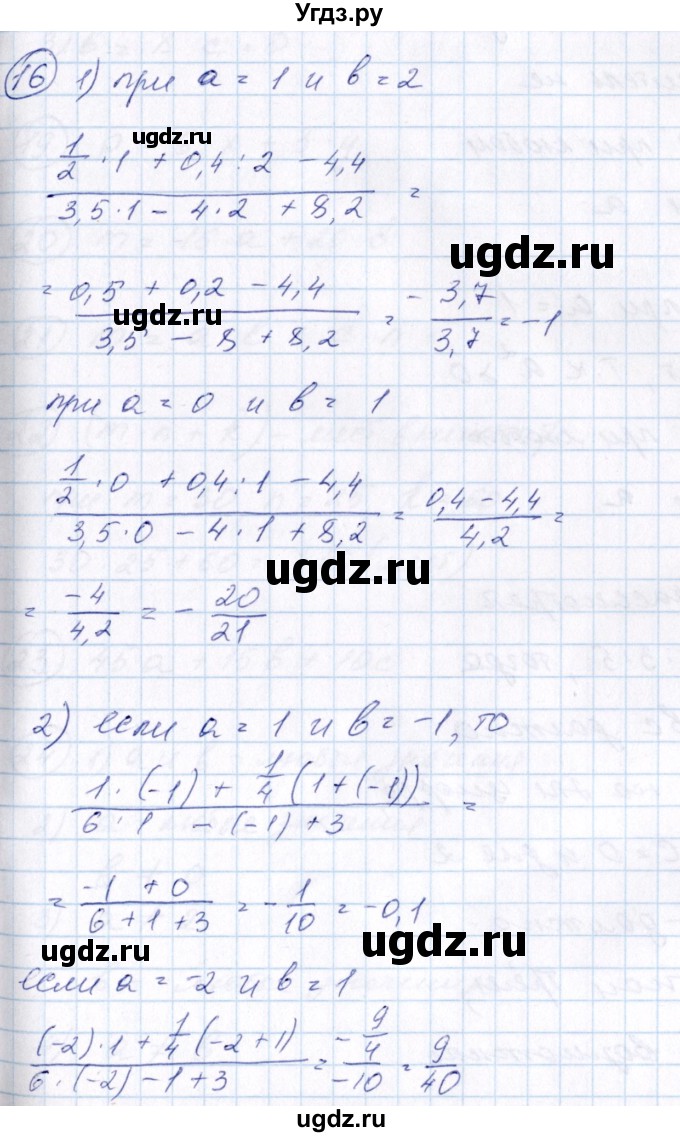 Угдз.ру
16 1) при a = 1 и b = 2
ugdz.ru
1/2 · 1 + 0,4 : 2 − 4,4
3,5 · 1 − 4 · 2 + 8,2 =
ugdz.ru
= 0,5 + 0,2 − 4,4
3,5 − 8 + 8,2 = − 3,7/3,7 = −1
ugdz.ru
при a = 0 и b = 1
1/2 · 0 + 0,4 : 1 − 4,4
3,5 · 0 − 4 · 1 + 8,2 = 0,4 − 4,4/4,2 =
ugdz.ru
= −4/4,2 = − 20/21
2) если a = 1 и b = −1, то
1 · (−1) + 1/4 (1 + (−1))
6 · 1 − (−1) + 3 =
ugdz.ru
= −1 + 0
6 + 1 + 3 = − 1/10 = −0,1
ugdz.ru
ugdz.ru
если a = −2 и b = 1
(−2) · 1 + 1/4 (−2 + 1)
6 · (−2) − 1 + 3 = − 9/4 / −10 = 9/40
ugdz.ru
ugdz.ru